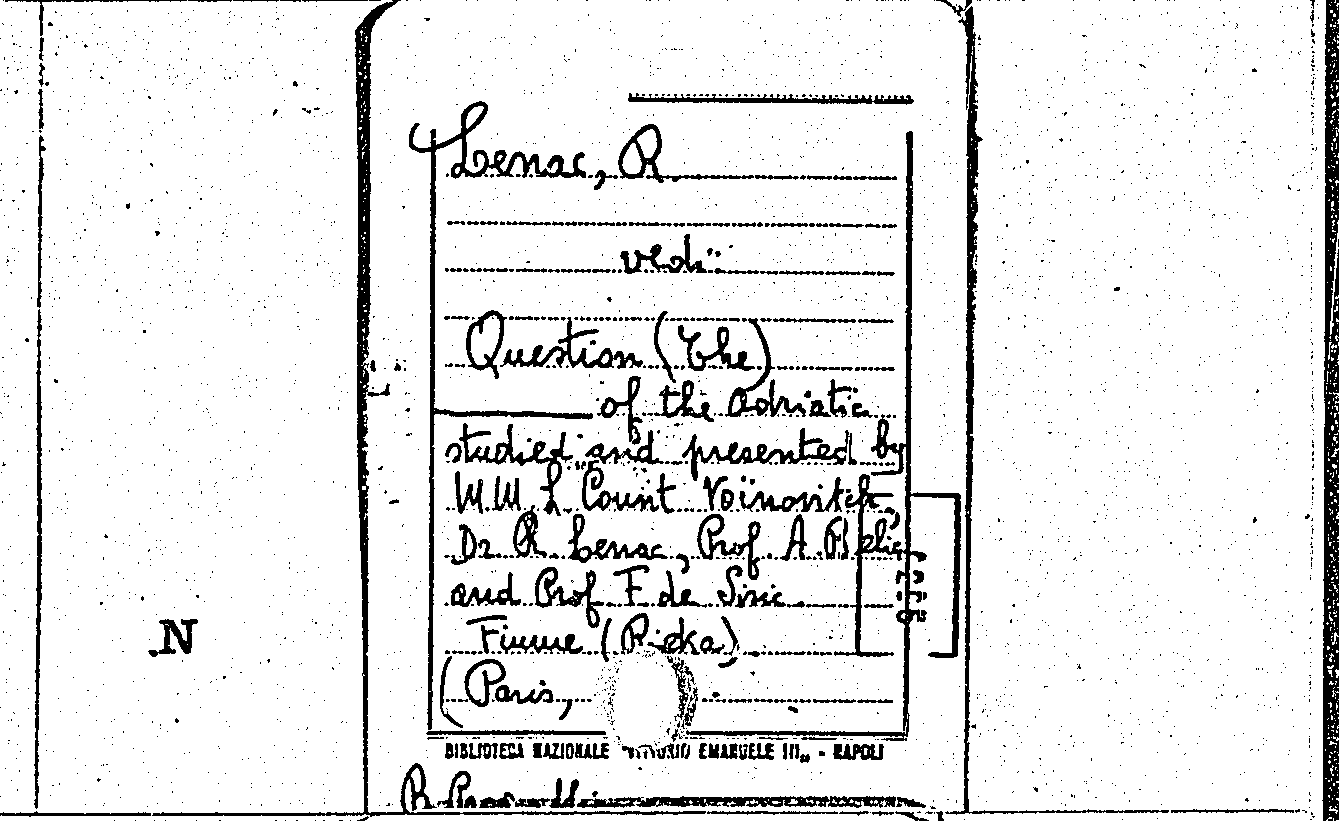 Lenac, R.
vedi:
Question (The)
of the adriatic
studied and presented by
M.M. L. Count Voïnovitch,
Dr. R. Lenac, Prof. A. Belic
and Prof. F. de Sisic.
Fiume (Rieka).
(Paris,
BIBLIOTECA NAZIONALE "VITTORIO EMANUELE III„ - NAPOLI
.N